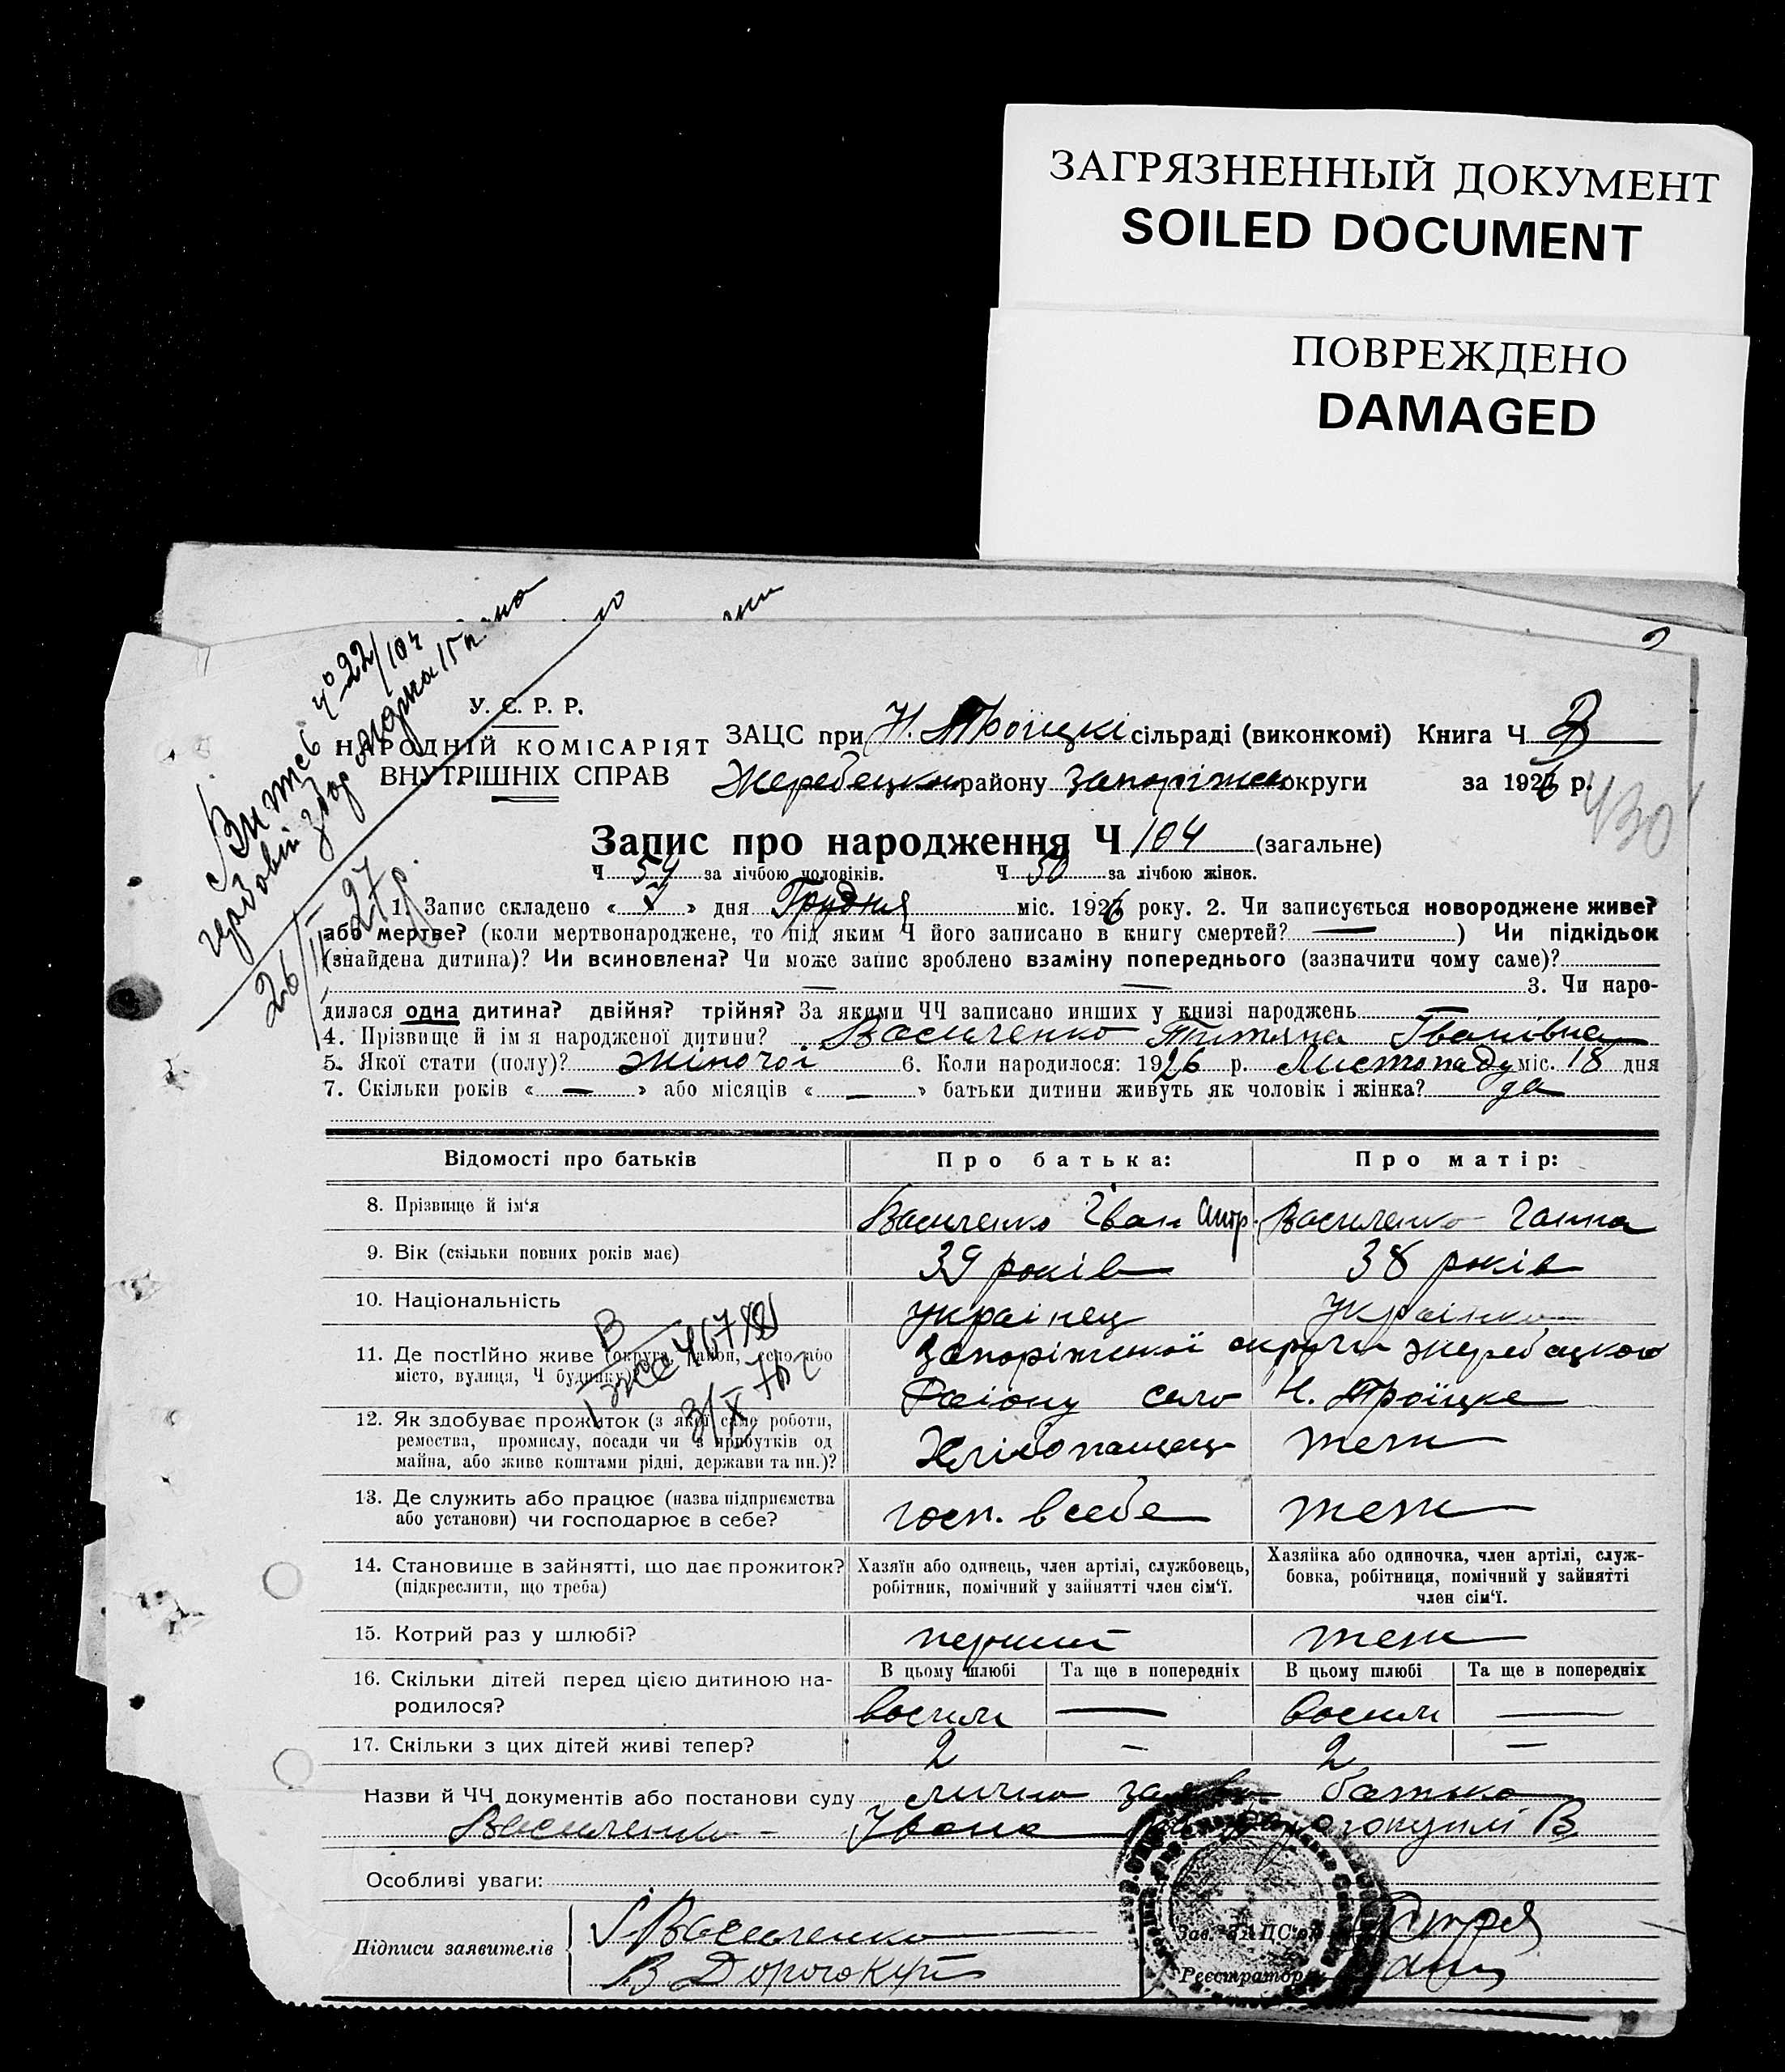 ЗАГРЯЗНЕННЫЙ ДОКУМЕНТ
SOILED DOCUMENT
ПОВРЕЖДЕНО
DAMAGED
У. С. Р. Р.
НАРОДНІЙ КОМІСАРІЯТ
ВНУТРІШНІХ СПРАВ
ЗАЦС при Н. Троіцкі сільраді (виконкомі) Книга Ч
Жеребецком району Запоріжск округи за 1926 р.
430
Запис про народження Ч 104 (загальне)
Ч 54 за лічбою чоловіків. Ч 50 за лічбою жінок.
1. Запис складено « » дня Грудня міс. 1926 року. 2. Чи записується новороджене живе?
або мертве? (коли мертвонароджене, то під яким Ч його записано в книгу смертей? — ) Чи підкідьок
(знайдена дитина)? Чи всиновлена? Чи може запис зроблено взаміну попереднього (зазначити чому саме)?
— — 3. Чи наро-
дилася одна дитина? двійня? трійня? За якими ЧЧ записано инших у книзі народжень —
4. Прізвище й ім'я народженої дитини? Василенко Титяна Іванівна
5. Якої стати (полу)? жіночоі 6. Коли народилося: 1926 р. Листопаду міс. 18 дня
7. Скільки років « — » або місяців « — » батьки дитини живуть як чоловік і жінка? да
Відомості про батьків Про батька: Про матір:
8. Прізвище й ім'я Василенко Іван Василенко Ганна
9. Вік (скільки повних років має) 39 років 38 років
10. Національність украінец украінка
11. Де постійно живе (округа, район, село або Запоріжскоі округи Жеребецкого
місто, вулиця, Ч будинку) Раіону село Н. Троіцке
12. Як здобуває прожиток (з якої саме роботи,
ремества, промислу, посади чи з прибутків од Хлібопашец теж
майна, або живе коштами рідні, держави та ин.)?
13. Де служить або працює (назва підприємства
або установи) чи господарює в себе? госп. в себе теж
14. Становище в зайнятті, що дає прожиток? Хазяїн або одинець, член артілі, службовець, Хазяйка або одиночка, член артілі, служ-
(підкреслити, що треба) робітник, помічний у зайнятті член сім'ї. бовка, робітниця, помічний у зайнятті
член сім'ї.
15. Котрий раз у шлюбі? перший теж
16. Скільки дітей перед цією дитиною на- В цьому шлюбі Та ще в попередніх В цьому шлюбі Та ще в попередніх
родилося? восим — восим —
17. Скільки з цих дітей живі тепер? 2 — 2 —
Назви й ЧЧ документів або постанови суду лична заява батька
Василенко Івана В
Особливі уваги:
Підписи заявителів І Василенко Зав. ЗАЦС'ом
В Дорогокупл Реєстратор